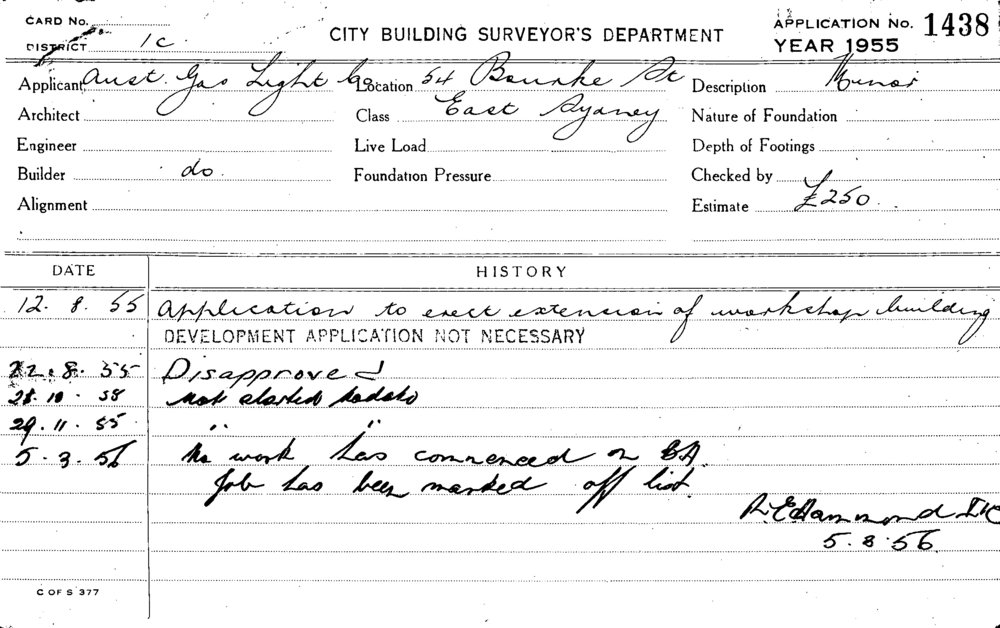 CARD No.
DISTRICT 1c
CITY BUILDING SURVEYOR'S DEPARTMENT
APPLICATION No. 1438
YEAR 1955
Applicant Aust. Gas Light Co Location 54 Bourke St Description Minor
Architect Class East Sydney Nature of Foundation
Engineer Live Load Depth of Footings
Builder do. Foundation Pressure Checked by
Alignment Estimate £250.
DATE HISTORY
12. 8. 55 Application to erect extension of workshop building
DEVELOPMENT APPLICATION NOT NECESSARY
22. 8. 55 Disapproved
28. 10. 58 Not started
29. 11. 55 " "
5. 3. 56 No work has commenced on BA.
Job has been marked off list.
R. E Hammond
5. 8. 56
C OF S 377